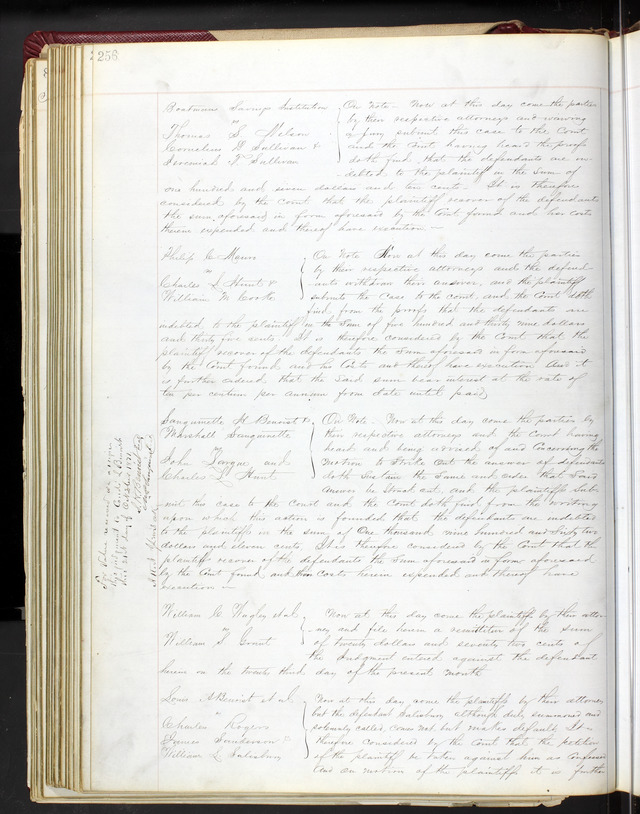 256
Boatmens Savings Institution
vs
Thomas S. Nelson
Cornelius D Sullivan &
Jeremiah W Sullivan
On Note - Now at this day come the parties
by their respective attorneys and waiving
a Jury submit this case to the Court
and the Court having heard the proofs
doth find that the defendants are in-
debted to the plaintiff in the Sum of
one hundred and seven dollars and ten cents - It is therefore
considered by the Court that the plaintiff recover of the defendants
the sum aforesaid in form aforesaid by the Court found and her costs
herein expended and thereof have execution -
Philip C. Mauro
vs
Charles L Hunt &
William M Cooke
On Note Now at this day come the parties
by their respective attorneys and the defend-
ants withdraw their answer, and the plaintiff
submits the Case to the court, and the Court doth
find from the proofs that the defendants are
indebted to the plaintiff in the Sum of five hundred and thirty nine dollars
and thirty five cents It is therefore considered by the Court that the
plaintiff recover of the defendants the Sum aforesaid in form aforesaid
by the Court found, and his Costs and thereof have execution And it
is further ordered that the said sum bear interest at the rate of
ten per centum per annum from date until paid
Sanguinette H Benoist &
Marshall Sanguinette
John Torrque and
Charles L Hunt
On Note - Now at this day come the parties by
their respective attorneys and the Court having
heard and being advised of and Concerning the
Motion to Strike Out the answer of defendants
doth Sustain the Same and order that Said
Answer be Struck out, and the plaintiffs Sub-
mit this case to the court and the Court doth find from the writing
upon which this action is founded that the defendants are indebted
to the plaintiffs in the sum of One thousand nine hundred and fifty two
dollars and eleven cents, It is therefore considered by the Court that the
plaintiffs recover of the defendants the Sum aforesaid in form aforesaid
by the Court found and their Costs herein expended and thereof have
execution -
William C. Wagley et al
vs
William S. Grant
Now at this day come the plaintiffs by their attor-
ney and file herein a remittitur of the Sum
of twenty dollars and seventy two cents of
the Judgment entered against the defendant
herein on the twenty third day of the present month
Louis A Benoist et al.
vs
Charles Rogers
James Sanderson &
William L Salisbury
Now at this day come the plaintiffs by their attorney
but the defendant Salisbury although duly summoned and
solemnly called, comes not but makes default, It is
therefore Considered by the Court that the petition
of the plaintiff be taken against him as Confessed
And on motion of the plaintiffs it is further